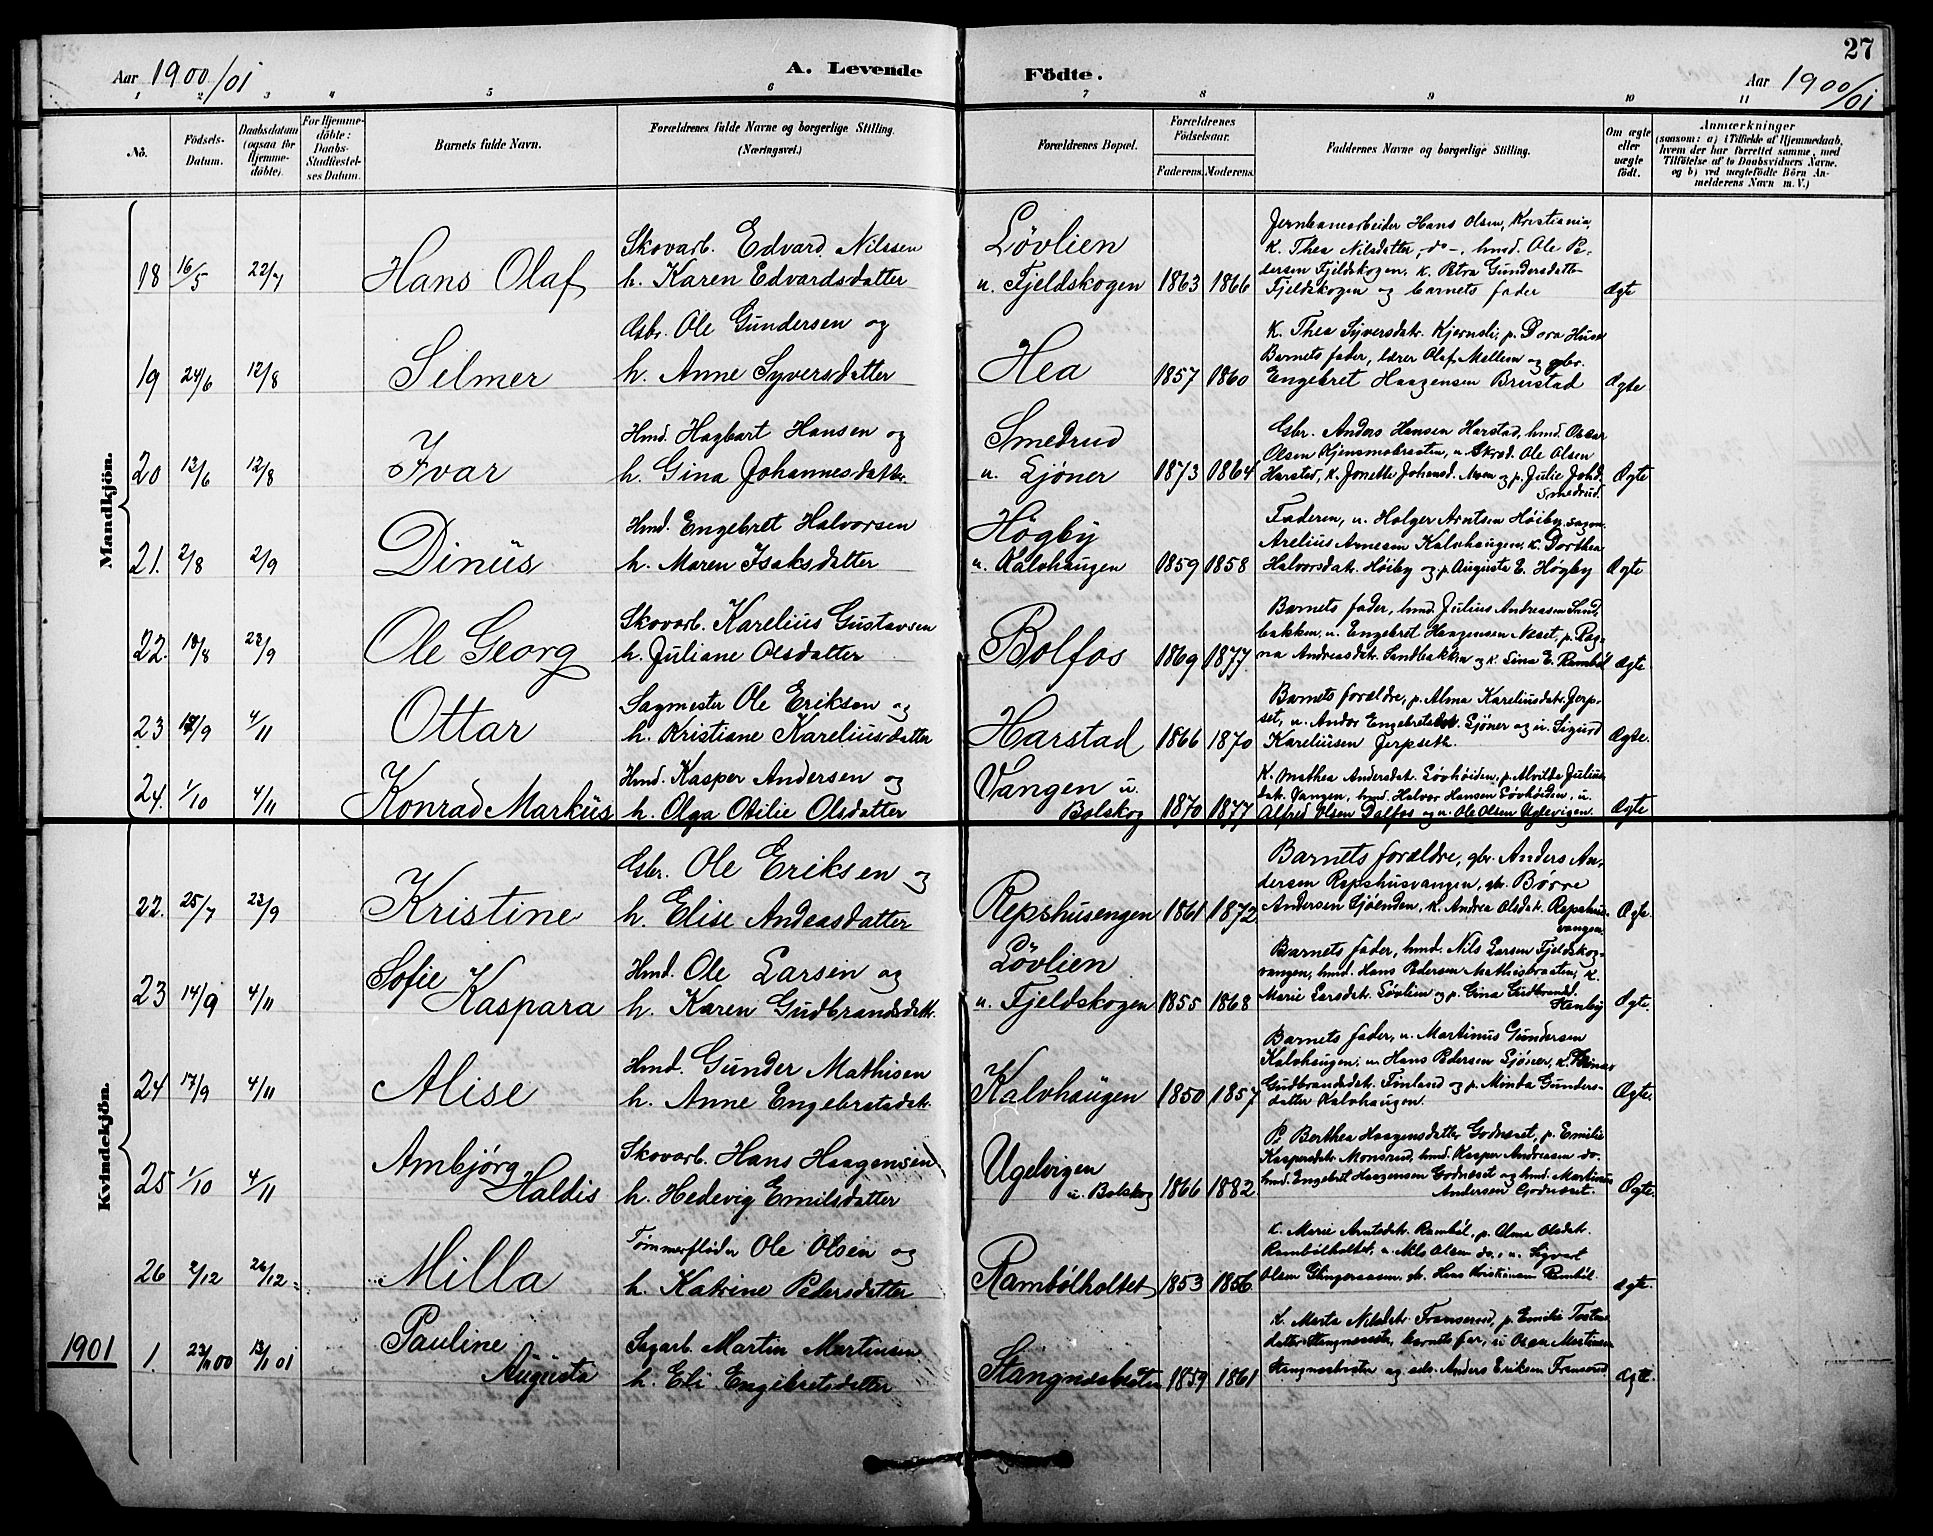 27
Aar 1900/01
A. Levende Födte.
Aar 1900/01
1 2 3 4 5 6 7 8 9 10 11
No.
Födsels-Datum.
Daabsdatum (ogsaa for Hjemme-döbte).
For Hjemme-döbte: Daabs-Stadfæstel-ses Datum.
Barnets fulde Navn.
Forældrenes fulde Navne og borgerlige Stilling. (Næringsvei.)
Forældrenes Bopæl.
Forældrenes Födselsaar.
Faderens. Moderens.
Faddernes Navne og borgerlige Stilling.
Om ægte eller uægte födt.
Anmærkninger
(saasom: a) i Tilfælde af Hjemmedaab, hvem der har forrettet samme, med Tilföielse af to Daabsvidners Navne, og b) ved uægtefödte Börn An-melderens Navn m. V.)
Mandkjön.
18 16/5 22/7 Hans Olaf
Skovarb. Edvard Nilssen
h. Karen Edvardsdatter
Løvlien
u. Fjeldskogen 1863 1866
Jernbanearbeider Hans Olsen, Kristiania,
K. Thea Nilsdatter, do-, hmd. Ole Pe-
dersen Fjeldskogen, K. Petra Gundersdatter
Fjeldskogen og barnets fader Ægte
19 24/6 12/8 Selmer
Gbr. Ole Gundersen og
h. Anne Syversdatter
Hea 1857 1860
K. Thea Syversdatr. Kjernsli, p. Dora
Barnets fader, lærer Olaf Mellem og gbr.
Engebret Haagensen Brustad Ægte
20 13/6 12/8 Ivar
Hmd. Hagbart Hansen og
h. Gina Johannesdatter
Smedrud
u. Sjøner 1873 1864
Gbr. Anders Hansen Harstad, hmd. Oskar
Olsen Kjensmobraaten, u. Ole Olsen
Harstad, K. Jonette Johansd. Moen og p. Julie Johd.
Smedrud. Ægte
21. 2/8 2/9 Dinüs
Hmd. Engebret Halvorsen
h. Maren Isaksdatter
Høgby
u. Kalvhaugen 1859 1858
Faderen, u. Holger Arntsen Høiby,
Arelius Arnesen Kalvhaugen, K. Dorthea
Halvorsdatr. Høiby og p. Auguste E. Høgby Ægte
22. 18/8 23/9 Ole Georg
Skovarb. Karelius Gustavsen
h. Juliane Olsdatter
Bolfos 1869 1877
Barnets fader, hmd. Julius Andreasen Sand-
bakken, u. Engebret Haagensen Næset, p. Rag-
na Andreasdatr. Sandbakken og K. Lina E. Rambøl Ægte
23 18/9 4/11 Ottar
Sagmester Ole Eriksen og
h. Kristiane Kareliusdatter
Harstad 1866 1870
Barnets forældre, p. Alma Kareliusdatr. Jerp-
set, u. Andor Engebretsen Sjøner og u. Sigurd
Kareliüsen Jerpseth. Ægte.
24. 1/10 4/11 Konrad Marküs
Hmd. Kasper Andersen og
h. Olga Otilie Olsdatter
Vangen u.
Bolskog 1870 1877
K. Mathea Andersdatr. Løvhøiden, p. Alvilde Julius-
datr. Vangen, hmd. Halvor Hansen Løvhøiden, u.
Alfred Olsen Dalfos og u. Ole Olsen Uglevigen. Ægte
Kvindekjön.
22. 25/7 23/9 Kristine
Gbr. Ole Eriksen og
h. Elise Andeasdatter
Repshusengen 1861 1872
Barnets forældre, gbr. Anders An-
dersen Repshusvangen, gbr. Børre
Andersen Sjøenden, K. Andrea Olsdatr. Repshus-
vangen. Ægte.
23 14/9 4/11 Sofie
Kaspara
Hmd. Ole Larsen og
h. Karen Gudbrandsdatr.
Løvlien
u. Fjeldskogen 1855 1868
Barnets fader, hmd. Nils Larsen Fjeldskog-
vangen, hmd. Hans Pedersen Mathisbraaten, K.
Marie Larsdatr. Løvlien og p. Gina Gudbrandsd.
Henby Ægte.
24 17/9 4/11 Alise
Hmd. Gunder Mathisen
h. Anne Engebretsdatr.
Kalvhaügen 1850 1857
Barnets fader, u. Martinus Gundersen
Kalvhaugen, u. Hans Pedersen Sjøner, K.
Gudbrandsdatr. Finland og p. Minda Gunders-
datter Kalvhaugen. Ægte.
25 1/10 4/11 Ambjørg
Haldis
Skovarb. Hans Haagensen
h. Hedevig Emilsdatter
Ugelvigen
u. Bolskog 1866 1882
P. Berthea Haagensdatter Godnæset, p. Emilie
Kaspersdatr. Monsrud, hmd. Kasper Andreasen do.
hmd. Engebret Haagensen Godnæset og hmd. Martinus
Andersen Godnæset. Ægte.
26 2/12 26/12 Milla
Tømmerfløder Ole Olsen og
h. Katrine Pedersdatter
Rambølholtet 1853 1856
K. Marie Arntsdatr. Rambøl, p. Alma Olsdatr.
Rambølholtet, u. Nils Olsen do., u. Syvert
Olsen, gbr. Hans Kristiansen Rambøl. Ægte.
1901 1. 23/11 00 13/1 01 Pauline
Augusta
Sagarb. Martin Martinsen
h. Eli Engebretsdatter
Stangnesbraten 1859 1861
K. Marta Nilsdatr. Fransrud, p. Emilie
datter, barnets far, u. Martinsen
og Anders Eriksen Fransrud Ægte.